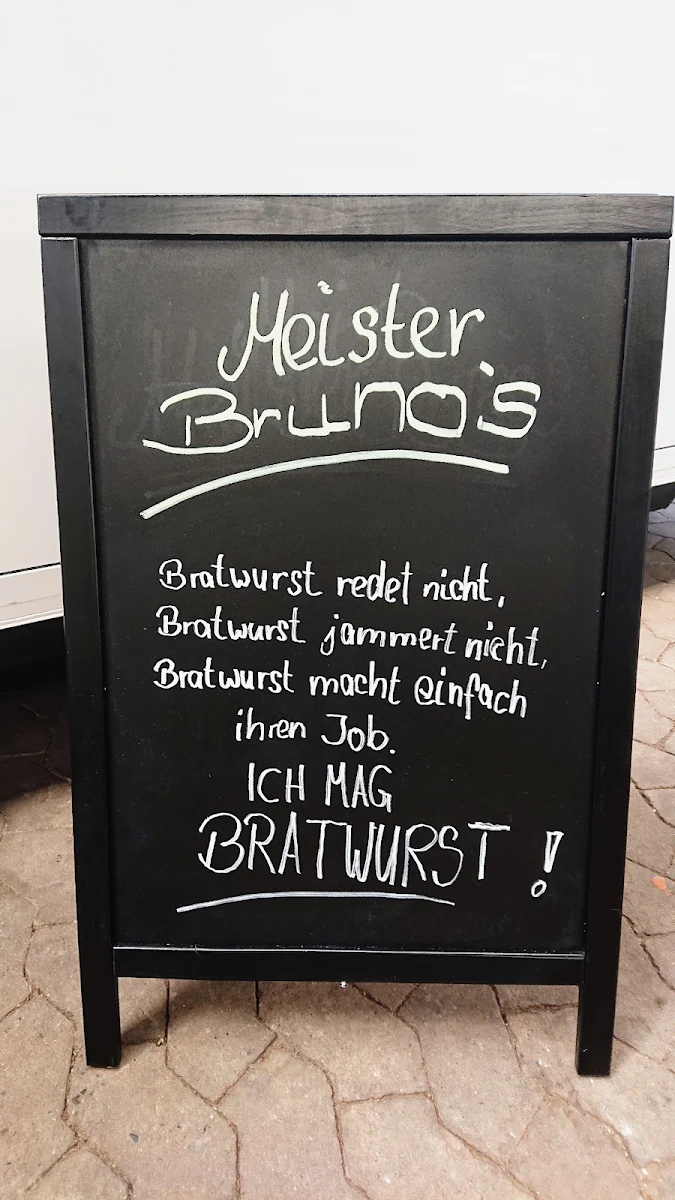 Meister
Bruno's
Bratwurst redet nicht,
Bratwurst jammert nicht,
Bratwurst macht einfach
ihren Job.
ICH MAG
BRATWURST !